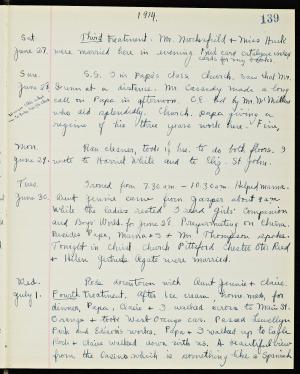 1914.
139
Sat.
June 27.
Third treatment. Mr. & Miss Huck
were married here in evening. Find card catalogue index
cards for my books.
Sun.
June 28.
S.S. I in Papa's class. Church. saw that Mr.
Gunn at a distance. Mr. Cassedy made a long
call on Papa in afternoon. C.E. led by Mr. McMillan
who did splendidly. Church. papa giving a
resume of his three years work here. Fine.
Mon.
June 29.
Ran cleaner, took 1½ hrs. to do both floors. I
wrote to Harriet White and to Eliz. St. John.
Tues.
June 30.
Ironed from 7.30 a.m. - 10.30 a.m. Helped mama.
Aunt Jennie came from Jasper about 9 a.m.
While the ladies rested I read Girls' Companion
and Boys' World for June 28. Prayermeeting on China.
Besides Papa, Mamma & I Mr. Thompson spoke.
Tonight in Christ Church Pittsford Chester Otis Reed
& Helen Gertrude Agate were married.
Wed.
July 1.
Rode downtown with Aunt Jennie & Claire.
Fourth treatment. After ice cream, home made, for
dinner, Papa, Claire & I walked across to Main St.
Orange & took West Orange car. Passed Llewellyn
Park and Edison's works. Papa & I walked up to Eagle
Rock & Claire walked down with us. A beautiful view
from the Casino which is something like a Spanish